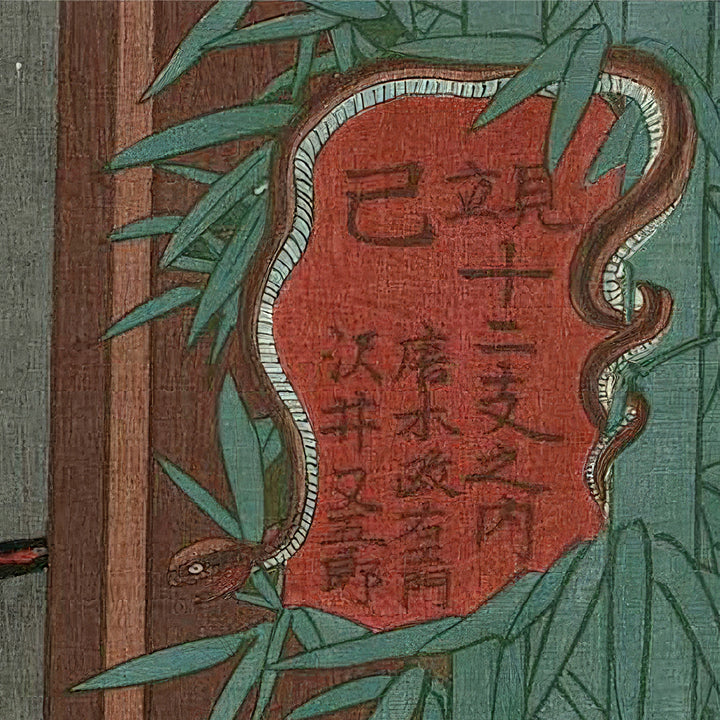 見立
十二支之内
己
唐木政右エ門
沢井又五郎